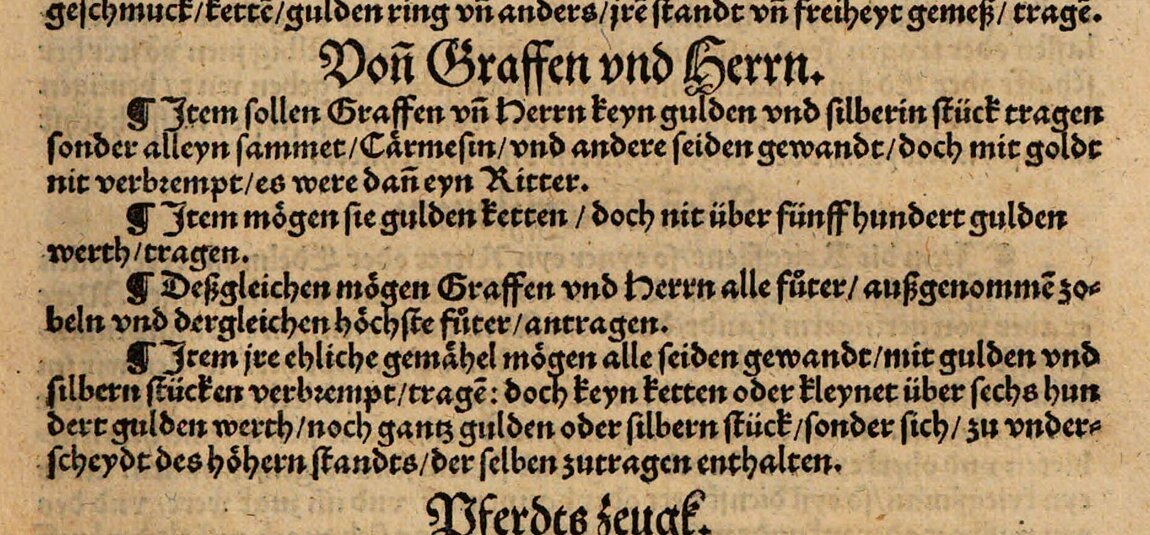 geschmuck/kettē/gulden ring vñ anders/jrē standt vñ freiheyt gemeß/ tragē.
Voñ Graffen vnd Herrn.
¶ Item sollen Graffen vñ Herrn keyn gulden vnd silberin stück tragen
sonder alleyn sammet/Cärmesin/vnd andere seiden gewandt/doch mit goldt
nit verbrempt/es were dañ eyn Ritter.
¶ Item mögen sie gulden ketten / doch nit über fünff hundert gulden
werth/tragen.
¶ Deßgleichen mögen Graffen vnd Herrn alle fůter/ außgenommē zo⸗
beln vnd dergleichen höchste fůter/antragen.
¶ Item jre ehliche gemähel mögen alle seiden gewandt/mit gulden vnd
silbern stücken verbrempt/tragē: doch keyn ketten oder kleynet über sechs hun
dert gulden werth/noch gantz gulden oder silbern stück/sonder sich/ zu vnder⸗
scheydt des höhern standts/der selben zutragen enthalten.
Pferdts zeugk.